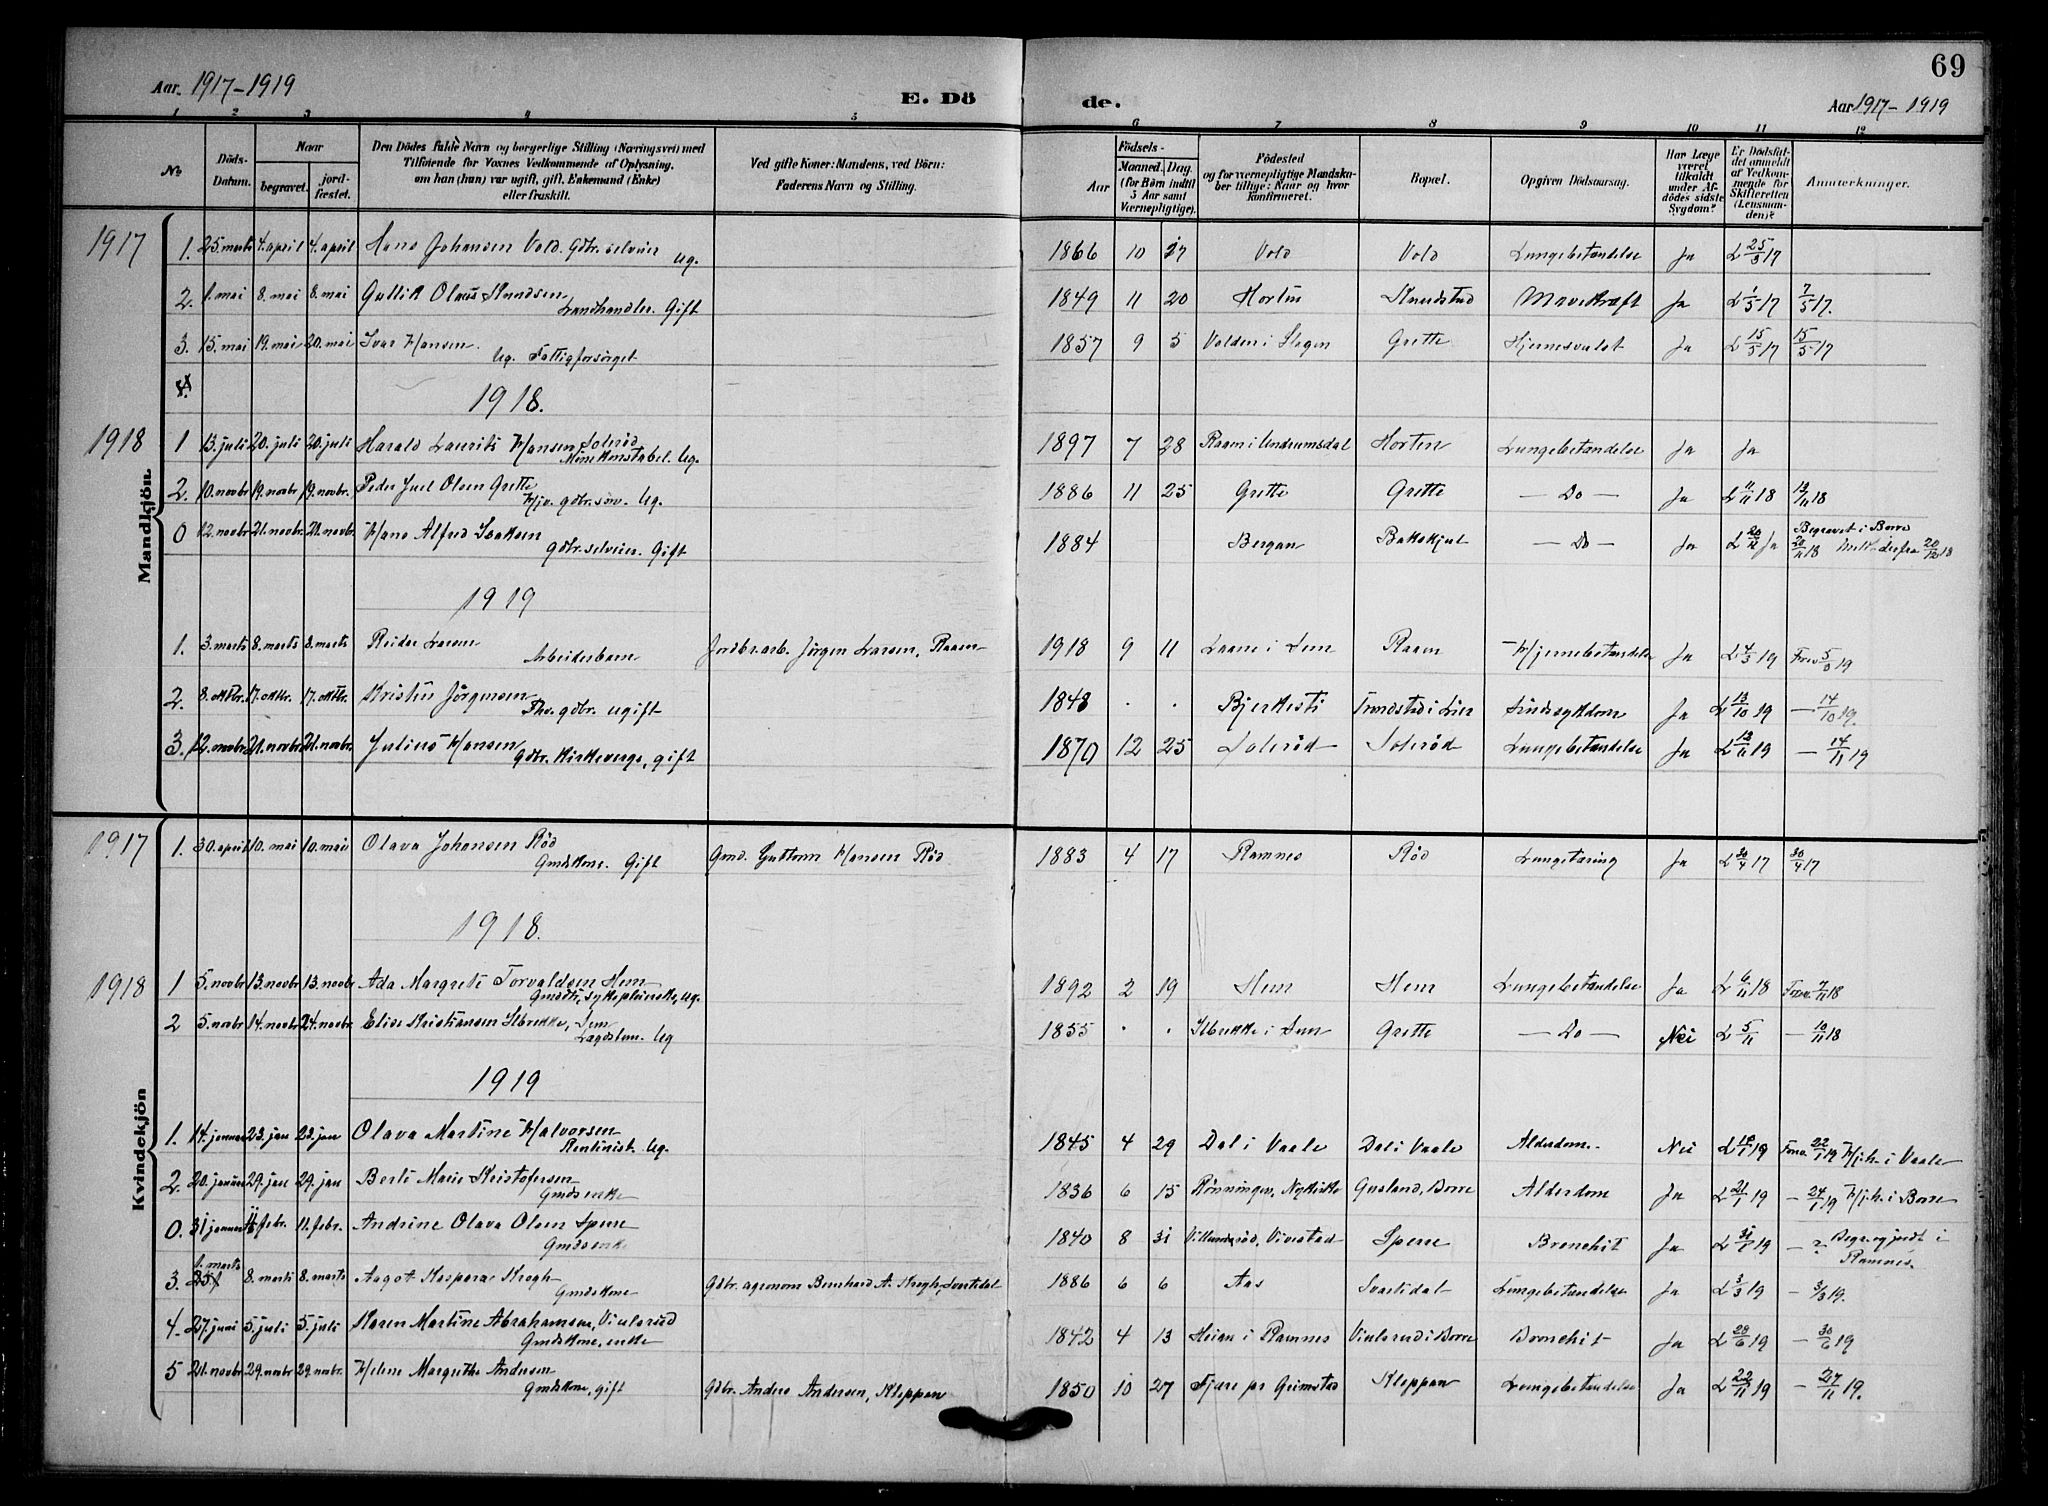 69
Aar. 1917-1919
E. Dö
de.
Aar 1917-1919
1 2 3 4 5 6 7 8 9 10 11 12
No
Döds-Datum.
Naar
begravet.
jord-fæstet.
Den Dödes fulde Navn og borgerlige Stilling (Næringsvei) med
Tilföiende for Voxnes Vedkommende af Oplysning,
om han (hun) var ugift, gift, Enkemand (Enke)
eller fraskilt.
Ved gifte Koner: Mandens, ved Börn:
Faderens Navn og Stilling.
Födsels-
Aar
Maaned. Dag.
(for Börn indtil
5 Aar samt
Værnepligtige).
Födested
og for værnepligtige Mandska-
ber tillige: Naar og hvor
konfirmeret.
Bopæl.
Opgiven Dödsaarsag.
Har Læge
været
tilkaldt
under Af-
dödes sidste
Sygdom?
Er Dödsfal-
det anmeldt
af Vedkom-
mende for
Skifteretten
(Lensman-
den)?
Anmærkninger.
Mandkjön
1917 1. 25. marts 4. april 4. april Hans Johansen Vold. Gdbr. selveier Ug. 1866 10 27 Vold Vold Lungebetændelse Ja L 25/3 17
2. 1. mai 8. mai 8. mai Gullik Olaus Knudsen Landhandler. Gift 1849 11 20 Horten Knudstad Mavekræft Ja L 1/5 17 7/5 17.
3. 15. mai 19. mai 20. mai Ivar Hansen. Ug. Fattigforsørget 1857 9 5 Valden i Slagen Grette Hjerneslaget Ja L 15/5 17 15/5 17
4.
1918.
1918 1 13. juli 20. juli 20. juli Harald Laurits Hansen Solerød Minekonstabel. Ug. 1897 7 28 Raaen i Undrumsdal Horten Lungebetændelse Ja Ja
2. 10. novbr 19. novbr 19. novbr. Peder Juel Olsen Grette Hjv. gdbr. søn. Ug. 1886 11 25 Grette Grette — Do — Ja L 11/11 18 12/11 18
0 12. novbr 21. novbr. 21. novbr. Hans Alfred Isaksen Gdbr. selveier. Gift 1884 Bergan Bakskjul — Do — Ja L 20/11 Ja Begravet i Borre 20/11 18 Meld. derfra 20/12 18
1919
1. 3. marts 8. marts 8. marts Reidar Larsen Arbeiderbarn Jordbr.arb. Jörgen Larsen, Raaen 1918 9 11 Laane i Sem Raaen Hjernebetændelse Ja L 4/3 19 Frev 5/3 19
2. 8. oktbr. 17. oktbr. 17. oktbr. Kristen Jörgensen Fhv. gdbr. ugift 1848 . . Bjerkesti Trondstad i Lier Sindssykdom Ja L 13/10 19 — 14/10 19.
3. 12. novbr. 21. novbr. 21. novbr. Julius Hansen Gdbr. Kirkeverge, gift 1870 12 25 Solerød Solerød Lungebetændelse Ja L 13/11 19 — 14/11 19
Kvindekjön
1917 1. 30. april 10. mai 10. mai Olava Johansen Rød Gmdskone. Gift Gmd. Guttorm Hansen Rød 1883 4 17 Ramnes Rød Lungetæring Ja L 30/4 17 30/4 17
1918.
1918 1 5. novbr 13. novbr 13. novbr Ada Margrete Torvaldsen Hem Gmdsti, sykepleierske, ug. 1892 2 19 Hem Hem Lungebetændelse Ja L 6/11 18 Frev. 7/11 18
2 5. novbr 14. novbr 24. novbr Elise Kristiansen Ilbrekke, Sem Lægdslem. Ug 1855 . . Ilbrekke i Sem Grette — Do — Nei L 5/11 — 10/11 18
1919
1. 14. januar 23. jan 23. jan Olava Martine Halvorsen Rentenist. Ug. 1845 4 29 Dal i Vaale Dal i Vaale Alderdom. Nei L 18/1 19 Frev. 22/1 19 Hjh. i Vaale
2. 20. januar 29. jan 29. jan Berte Marie Kristofersen Gmdsenke 1836 6 15 Rønningen, Nykirke Gusland, Borre Alderdom Ja L 21/1 19 — 24/1 19 Hjh. i Borre
0. 31 januar 11 febr. 11. febr. Andrine Olava Olsen Sperre Gmdsenke 1840 8 31 Villumsrød, Vivestad Sperre Bronchit Ja L 31/1 19 — ? Begr. og jordf. i Ramnes.
3. 1. marts 8. marts 8. marts Aagot Kaspara Krogh Gmdskone Gdbr. agronom Bernhard A. Krogh, Svartedal 1886 6 6 Aas Svartedal Lungebetændelse Ja L 3/3 19 — 3/3 19.
4. 27. juni 5. juli 5. juli Karen Martine Abrahamsen, Vinlerød Gmdskone, enke 1842 4 13 Heian i Ramnes Vinlerød i Borre Bronchit Ja L 28/6 19 — 30/6 19
5 21. novbr 29. novbr 29. novbr. Helene Margrethe Andersen Gmdskone, gift Gdbr. Anders Andersen, Kleppan 1850 10 27 Fjære pr Grimstad Kleppan Lungebetændelse Ja L 22/11 19 — 27/11 19.